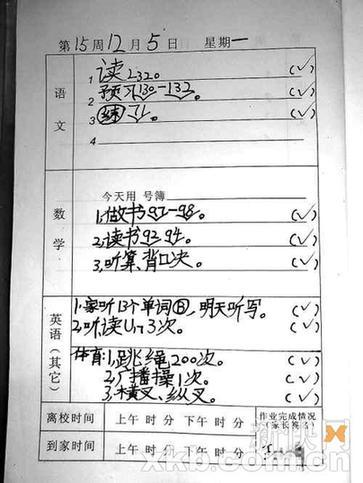 第15周12月5日 星期一
语文
1 读L320。 (✓)
2 预习130-132。 (✓)
3 (练)71。 (✓)
4
数学
今天用 号簿
1,做书97-98。 (✓)
2,读书93 94。 (✓)
3,听算、背口决。 (✓)
英语(其它)
1.家听13个单词B,明天听写。 (✓)
2.听读Un3次。 (✓)
体育:1,跳绳200次。 (✓)
2.广播操1次。 (✓)
3.横叉、纵叉。 (✓)
离校时间 上午 时 分 下午 时 分 作业完成情况(家长签名)
到家时间 上午 时 分 下午 时 分
新快网
xkb.com.cn